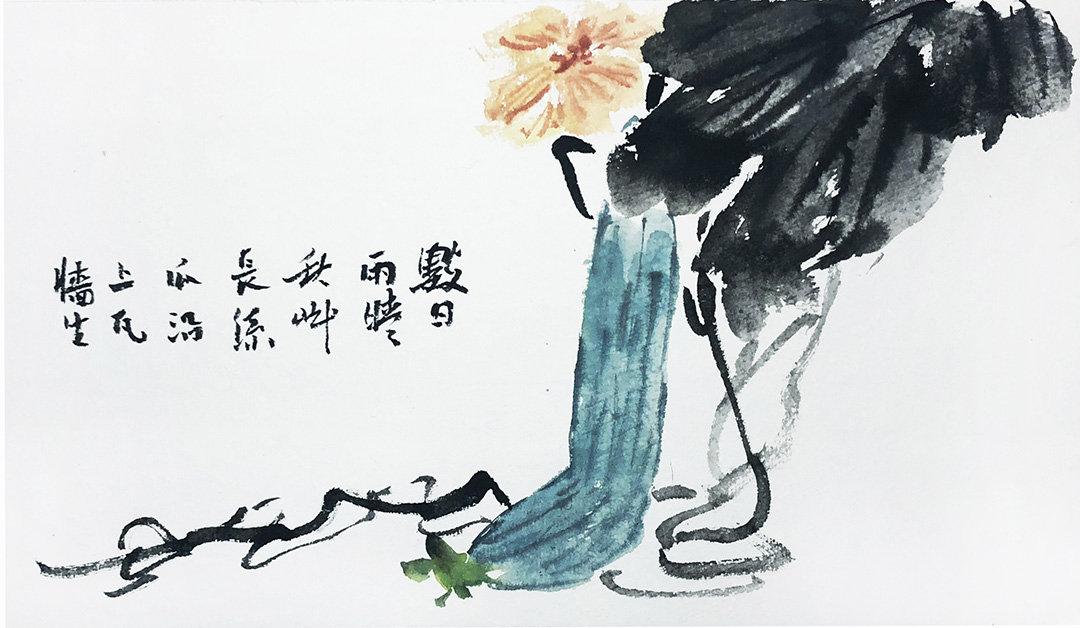 數日
雨晴
秋艸
長絲
瓜沿
上瓦
牆生